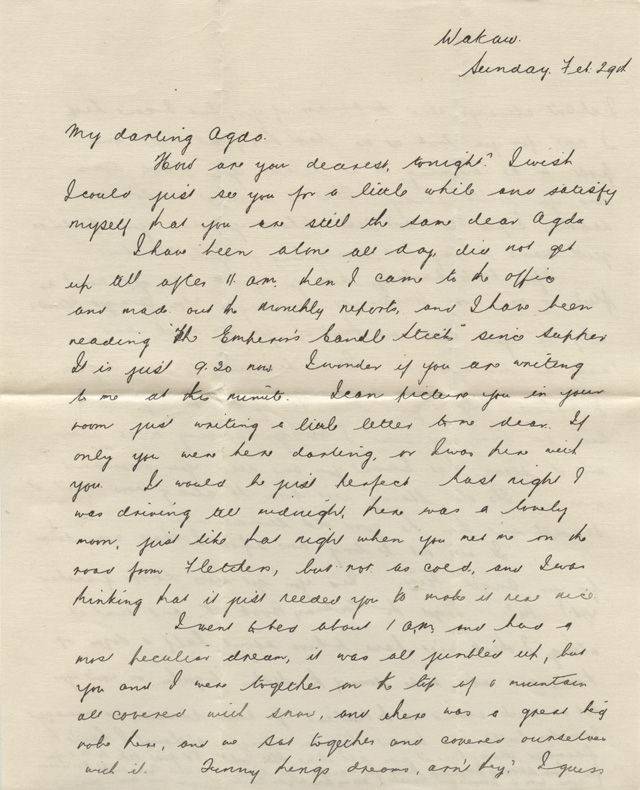 Wakaw.
Sunday. Feb. 29th
My darling Agda.
How are you dearest, tonight? I wish
I could just see you for a little while and satisfy
myself that you are still the same dear Agda
I have been alone all day, did not get
up till after 11 a.m. then I came to the office
and made out the monthly reports, and I have been
reading "The Emperor's Candle Stick" since supper
It is just 9.20 now. I wonder if you are writing
to me at this minute. I can picture you in your
room just writing a little letter to me dear. If
only you were here darling, or I was there with
you. It would be just perfect Last night I
was driving till midnight, there was a lovely
moon, just like that night when you met me on the
road from Fletchers, but not as cold, and I was
thinking that it just needed you to make it real nice
I went to bed about 1 a.m. and had a
most peculiar dream, it was all jumbled up, but
you and I were together on the top of a mountain
all covered with snow, and there was a great big
robe there, and we sat together and covered ourselves
with it. Funny things dreams, arn't they? I guess